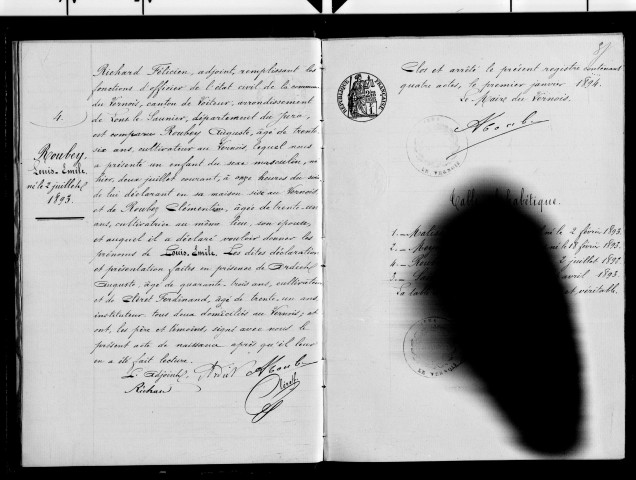 Richard Félicien, adjoint, remplissant les
fonctions d'officier de l'état civil de la commune
du Vernois, canton de Voiteur, arrondissement
de Lons le Saunier, département du Jura,
est comparu Roubey Auguste, âgé de trente
six ans, cultivateur au Vernois, lequel nous
a présenté un enfant du sexe masculin, né
hier, deux juillet courant, à onze heures du soir
de lui déclarant en sa maison sise au Vernois
et de Roubey Clémentine, âgée de trente-un
ans, cultivatrice au même lieu, son épouse,
et auquel il a déclaré vouloir donner les
prénoms de Louis Emile. Les dites déclaration
et présentation faites en présence de
Auguste, âgé de quarante-trois ans, cultivateur
et de Cléret Ferdinand, âgé de trente-un ans,
instituteur tous deux domiciliés au Vernois; et
ont, les père et témoins, signé avec nous le
présent acte de naissance après qu'il leur
en a été fait lecture.
L'adjoint,
Richard
4.
Roubey,
Louis Emile.
né le 2 juillet
1893.
Clos et arrêté le présent registre contenant
quatre actes, le premier janvier 1894.
Le Maire du Vernois.
RÉPUBLIQUE FRANÇAISE
Table alphabétique.
1. né le 2 février 1893.
2. né le 18 février 1893.
4. juillet 1893.
3. avril 1893.
véritable.